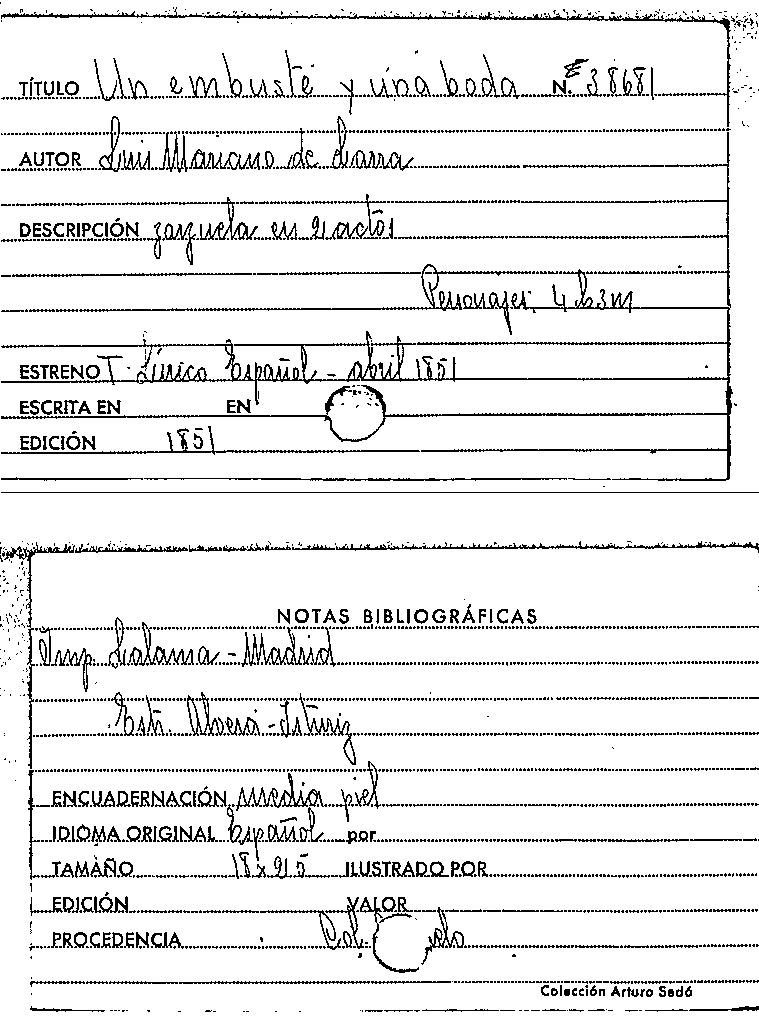 TÍTULO Un embuste y una boda N.º 38681
AUTOR Luis Mariano de Larra
DESCRIPCIÓN zarzuela en 2 actos
Personajes: 4 h 3 m
ESTRENO T. Lírico Español - abril 1851
ESCRITA EN EN
EDICIÓN 1851
NOTAS BIBLIOGRÁFICAS
Imp. Lalama - Madrid
Estr. Alverá - Isturiz
ENCUADERNACIÓN media piel
IDIOMA ORIGINAL Español por
TAMAÑO 18x25 ILUSTRADO POR
EDICIÓN VALOR
PROCEDENCIA Col.
Colección Arturo Sedó